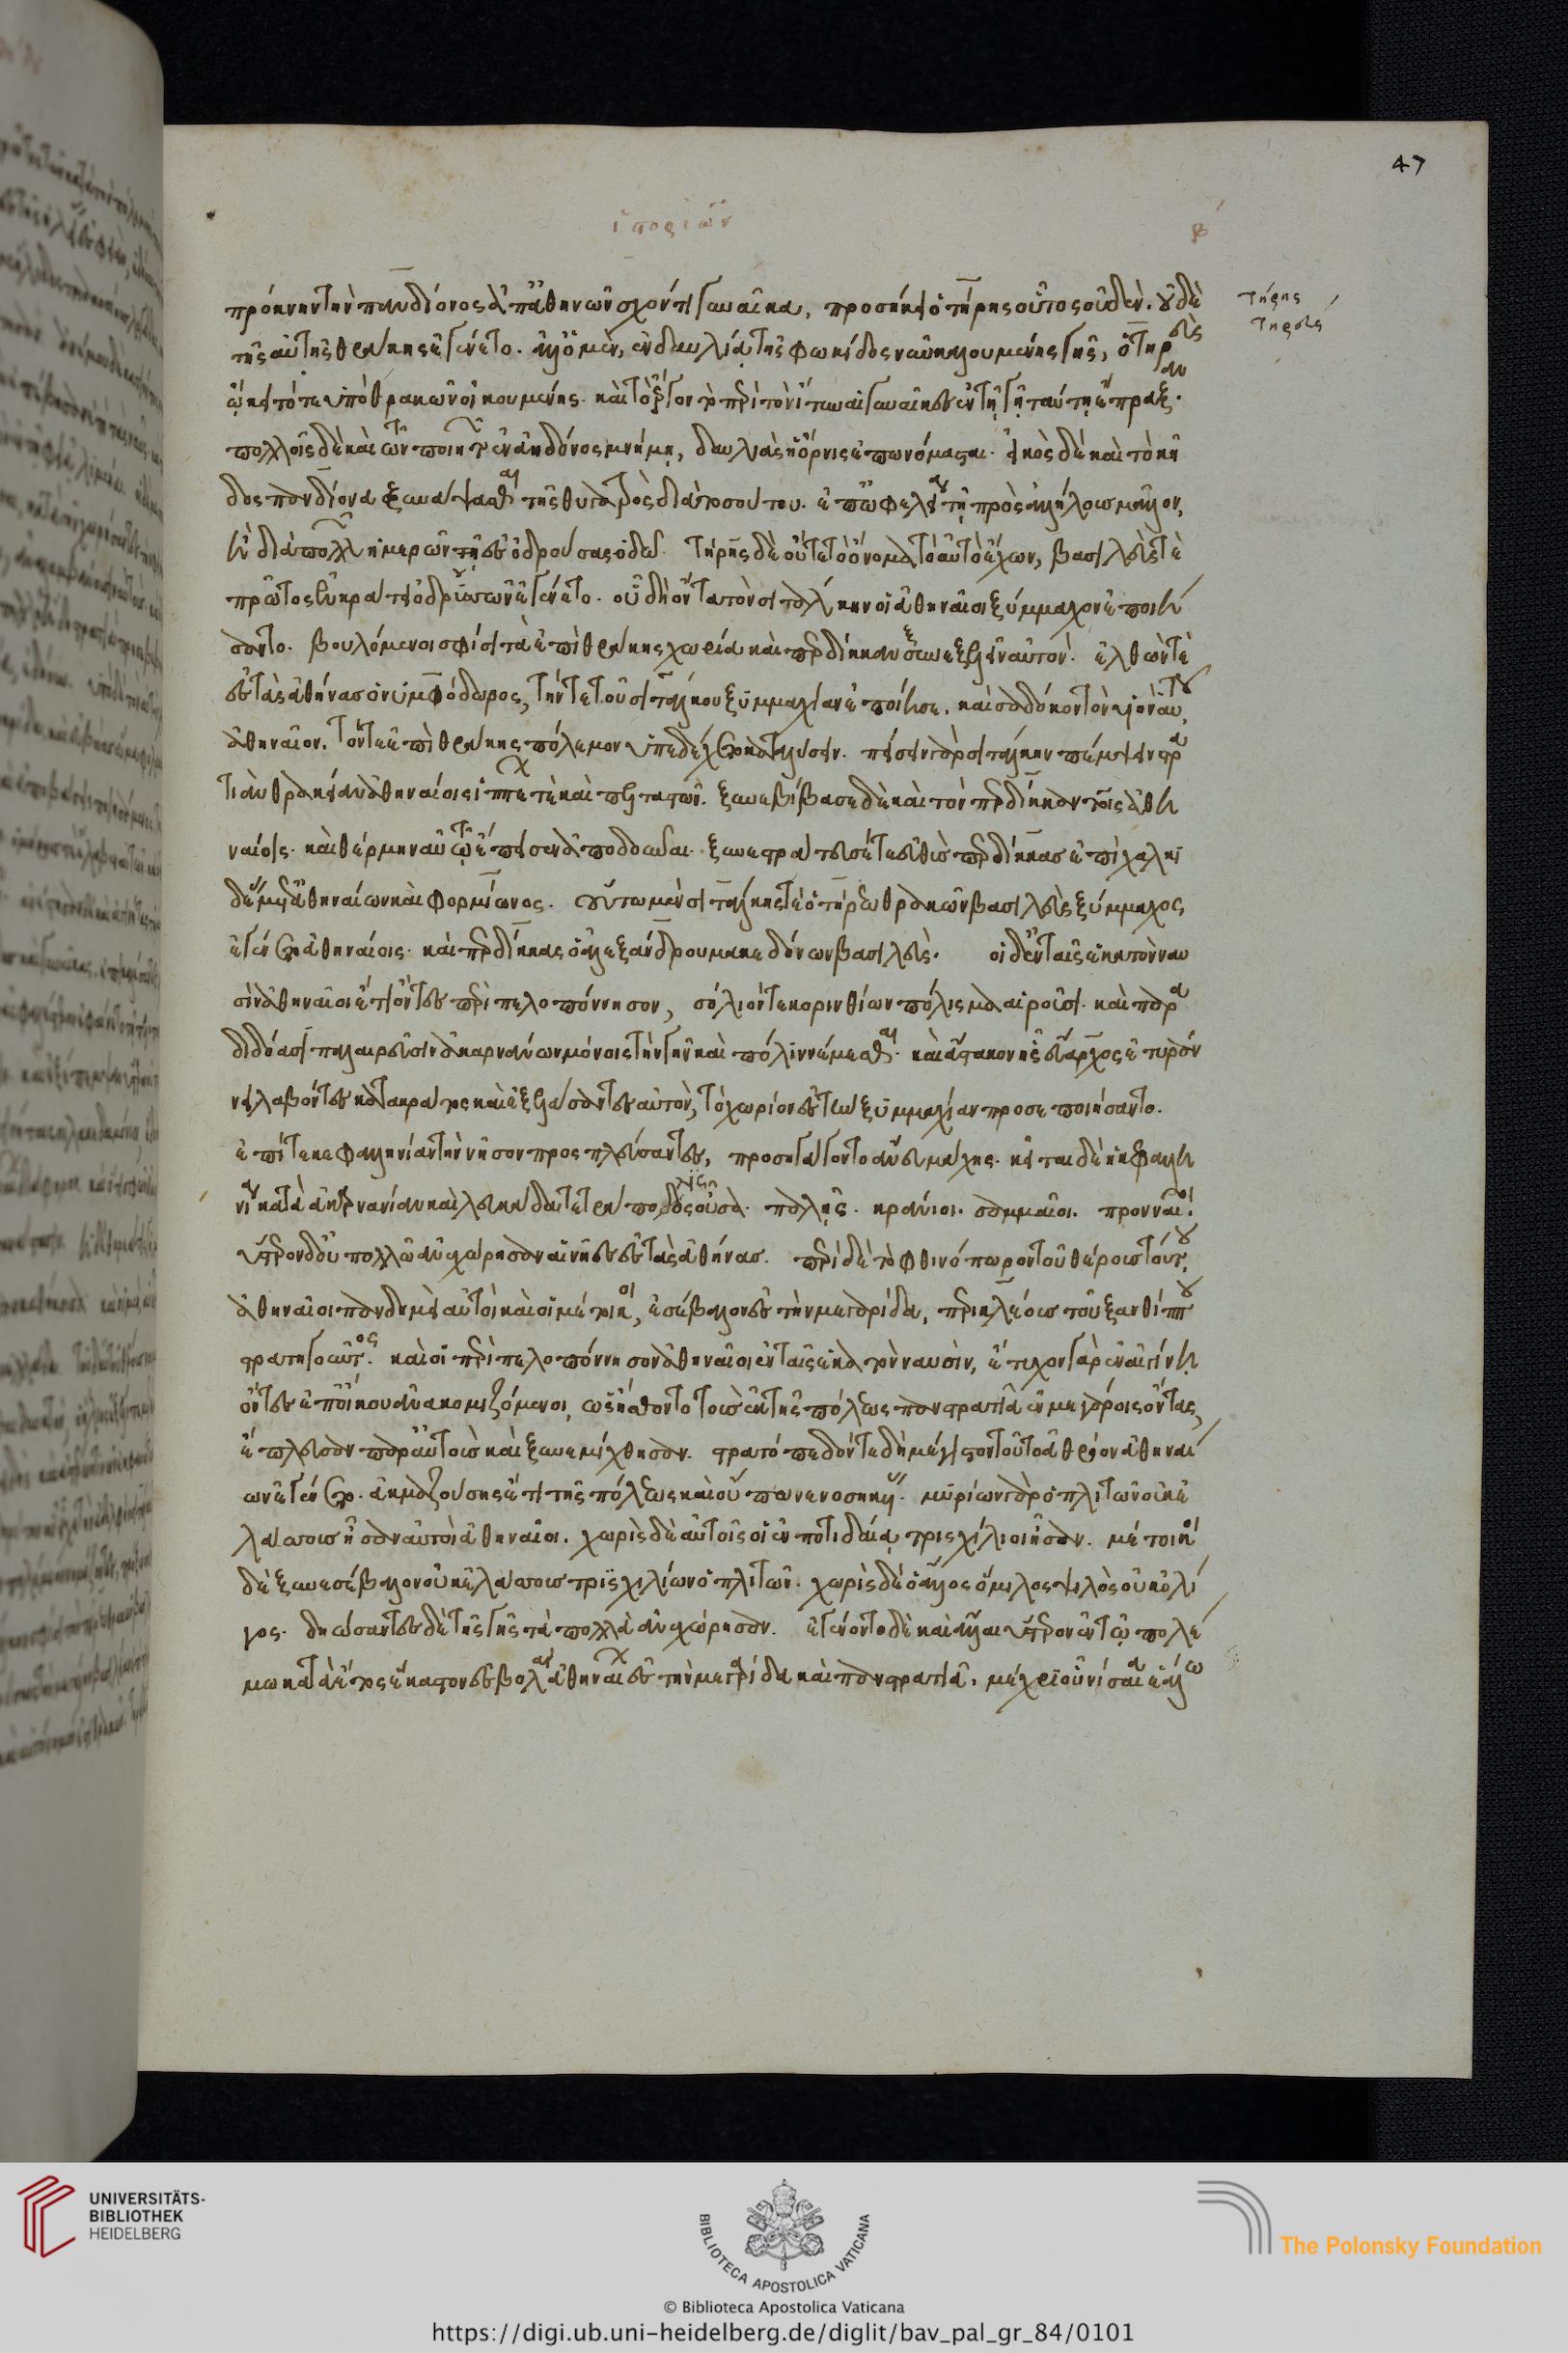 47
ἱστοριῶν β´
πρόκνην τὴν πανδίονος ἀπ᾽ ἀθηνῶν σχόντι γυναῖκα, προσήκει ὁ τήρης οὗτος οὐδέν. οὐδὲ
τήρης
τηρεὺς
τῆς αὐτῆς θράκης ἐγένετο. ἀλλ᾽ ὁ μὲν, ἐν δαυλίᾳ τῆς φωκίδος νῦν καλουμένης γῆς, ὁ τηρεὺς
ᾤκει τότε ὑπὸ θρακῶν οἰκουμένης. καὶ τὸ ἔργον τὸ περὶ τὸν ἴτυν αἱ γυναῖκες ἐν τῇ γῇ ταύτῃ ἔπραξαν.
πολλοῖς δὲ καὶ τῶν ποιητῶν ἐν ἀηδόνος μνήμῃ, δαυλιὰς ἡ ὄρνις ἐπωνόμασται. εἰκὸς δὲ καὶ τὸ κῆ
δος πανδίονα ξυνάψασθαι τῆς θυγατρὸς διὰ τοσούτου. ἐπ᾽ ὠφελείᾳ τῇ πρὸς ἀλλήλους μᾶλλον,
ἢ διὰ πολλῶν ἡμερῶν τῆς ἐς ὀδρύσας ὁδοῦ. τήρης δὲ οὔτε τὸ ὄνομα τὸ αὐτὸ ἔχων, βασιλεύς τε
πρῶτος ἐν κράτει ὀδρυσῶν ἐγένετο. οὗ δὴ ὄντα τὸν σιτάλκην οἱ ἀθηναῖοι ξύμμαχον ἐποιή
σαντο. βουλόμενοι σφίσι τὰ ἐπὶ θράκης χωρία καὶ περδίκκαν ξυνεξελεῖν αὐτόν. ἐλθών τε
ἐς τὰς ἀθήνας ὁ νυμφόδωρος, τήν τε τοῦ σιτάλκου ξυμμαχίαν ἐποίησε. καὶ σάδοκον τὸν υἱὸν αὐτοῦ,
ἀθηναῖον. τόν τε ἐπὶ θράκης πόλεμον ὑπεδέχετο καταλύσειν. πείσειν γὰρ σιτάλκην πέμπειν στρα
τιὰν θρακίαν ἀθηναίοις ἱππέων τε καὶ πελταστῶν. ξυνεβίβασε δὲ καὶ τὸν περδίκκαν τοῖς ἀθη
ναίοις. καὶ θέρμην αὐτῷ ἔπεισεν ἀποδοῦναι. ξυνεστράτευσέ τε εὐθὺς περδίκκας ἐπὶ χαλκι
δέας μετὰ ἀθηναίων καὶ φορμίωνος. οὕτω μὲν σιτάλκης τε ὁ τήρεω θρακῶν βασιλεὺς ξύμμαχος
ἐγένετο ἀθηναίοις. καὶ περδίκκας ὁ ἀλεξάνδρου μακεδόνων βασιλεύς. οἱ δ᾽ ἐν ταῖς ἑκατὸν ναυ
σὶν ἀθηναῖοι ἔτι ὄντες περὶ πελοπόννησον, σόλιόν τε κορινθίων πόλισμα αἱροῦσι. καὶ παρα
διδόασι παλαιρεῦσιν ἀκαρνάνων μόνοις τὴν γῆν καὶ πόλιν νέμεσθαι. καὶ ἄστακον ἧς εὔαρχος ἐτυράν
νει λαβόντες κατὰ κράτος καὶ ἐξελάσαντες αὐτὸν, τὸ χωρίον ἐς τὴν ξυμμαχίαν προσεποιήσαντο.
ἐπί τε κεφαλληνίαν τὴν νῆσον προσπλεύσαντες, προσηγάγοντο ἄνευ μάχης. κεῖται δὲ ἡ κεφαλλη
νία κατὰ ἀκαρνανίαν καὶ λευκάδα τετράπολις οὖσα. παλῆς. κράνιοι. σαμαῖοι. προνναῖοι.
ὕστερον δ᾽ οὐ πολλῷ ἀνεχώρησαν αἱ νῆες ἐς τὰς ἀθήνας. περὶ δὲ τὸ φθινόπωρον τοῦ θέρους τούτου,
ἀθηναῖοι πανδημεὶ αὐτοὶ καὶ οἱ μέτοικοι, ἐσέβαλον ἐς τὴν μεγαρίδα, περικλέους τοῦ ξανθίππου
στρατηγοῦντος. καὶ οἱ περὶ πελοπόννησον ἀθηναῖοι ἐν ταῖς ἑκατὸν ναυσὶν, ἔτυχον γὰρ ἐν αἰγίνῃ
ὄντες ἐπ᾽ οἴκου ἀνακομιζόμενοι, ὡς ᾔσθοντο τοὺς ἐκ τῆς πόλεως πανστρατιᾷ ἐν μεγάροις ὄντας,
ἔπλευσαν παρ᾽ αὐτοὺς καὶ ξυνεμίχθησαν. στρατόπεδόν τε δὴ μέγιστον τοῦτο ἀθρόον ἀθηναί
ων ἐγένετο. ἀκμαζούσης ἔτι τῆς πόλεως καὶ οὔπω νενοσηκυίας. μυρίων γὰρ ὁπλιτῶν οὐκ ἐ
λάσσους ἦσαν αὐτοὶ ἀθηναῖοι. χωρὶς δὲ αὐτοῖς οἱ ἐν ποτιδαίᾳ τρισχίλιοι ἦσαν. μέτοικοι
δὲ ξυνεσέβαλον οὐκ ἐλάσσους τρισχιλίων ὁπλιτῶν. χωρὶς δὲ ὁ ἄλλος ὅμιλος ψιλὸς οὐκ ὀλί
γος. δῃώσαντες δὲ τῆς γῆς τὰ πολλὰ ἀνεχώρησαν. ἐγένοντο δὲ καὶ ἄλλαι ὕστερον ἐν τῷ πολέ
μῳ κατὰ ἔτος ἕκαστον ἐσβολαὶ ἀθηναίων ἐς τὴν μεγαρίδα καὶ πανστρατιᾷ. μέχρι οὗ νίσαια ἑάλω
UNIVERSITÄTS-
BIBLIOTHEK
HEIDELBERG
BIBLIOTECA APOSTOLICA VATICANA
The Polonsky Foundation
© Biblioteca Apostolica Vaticana
https://digi.ub.uni-heidelberg.de/diglit/bav_pal_gr_84/0101